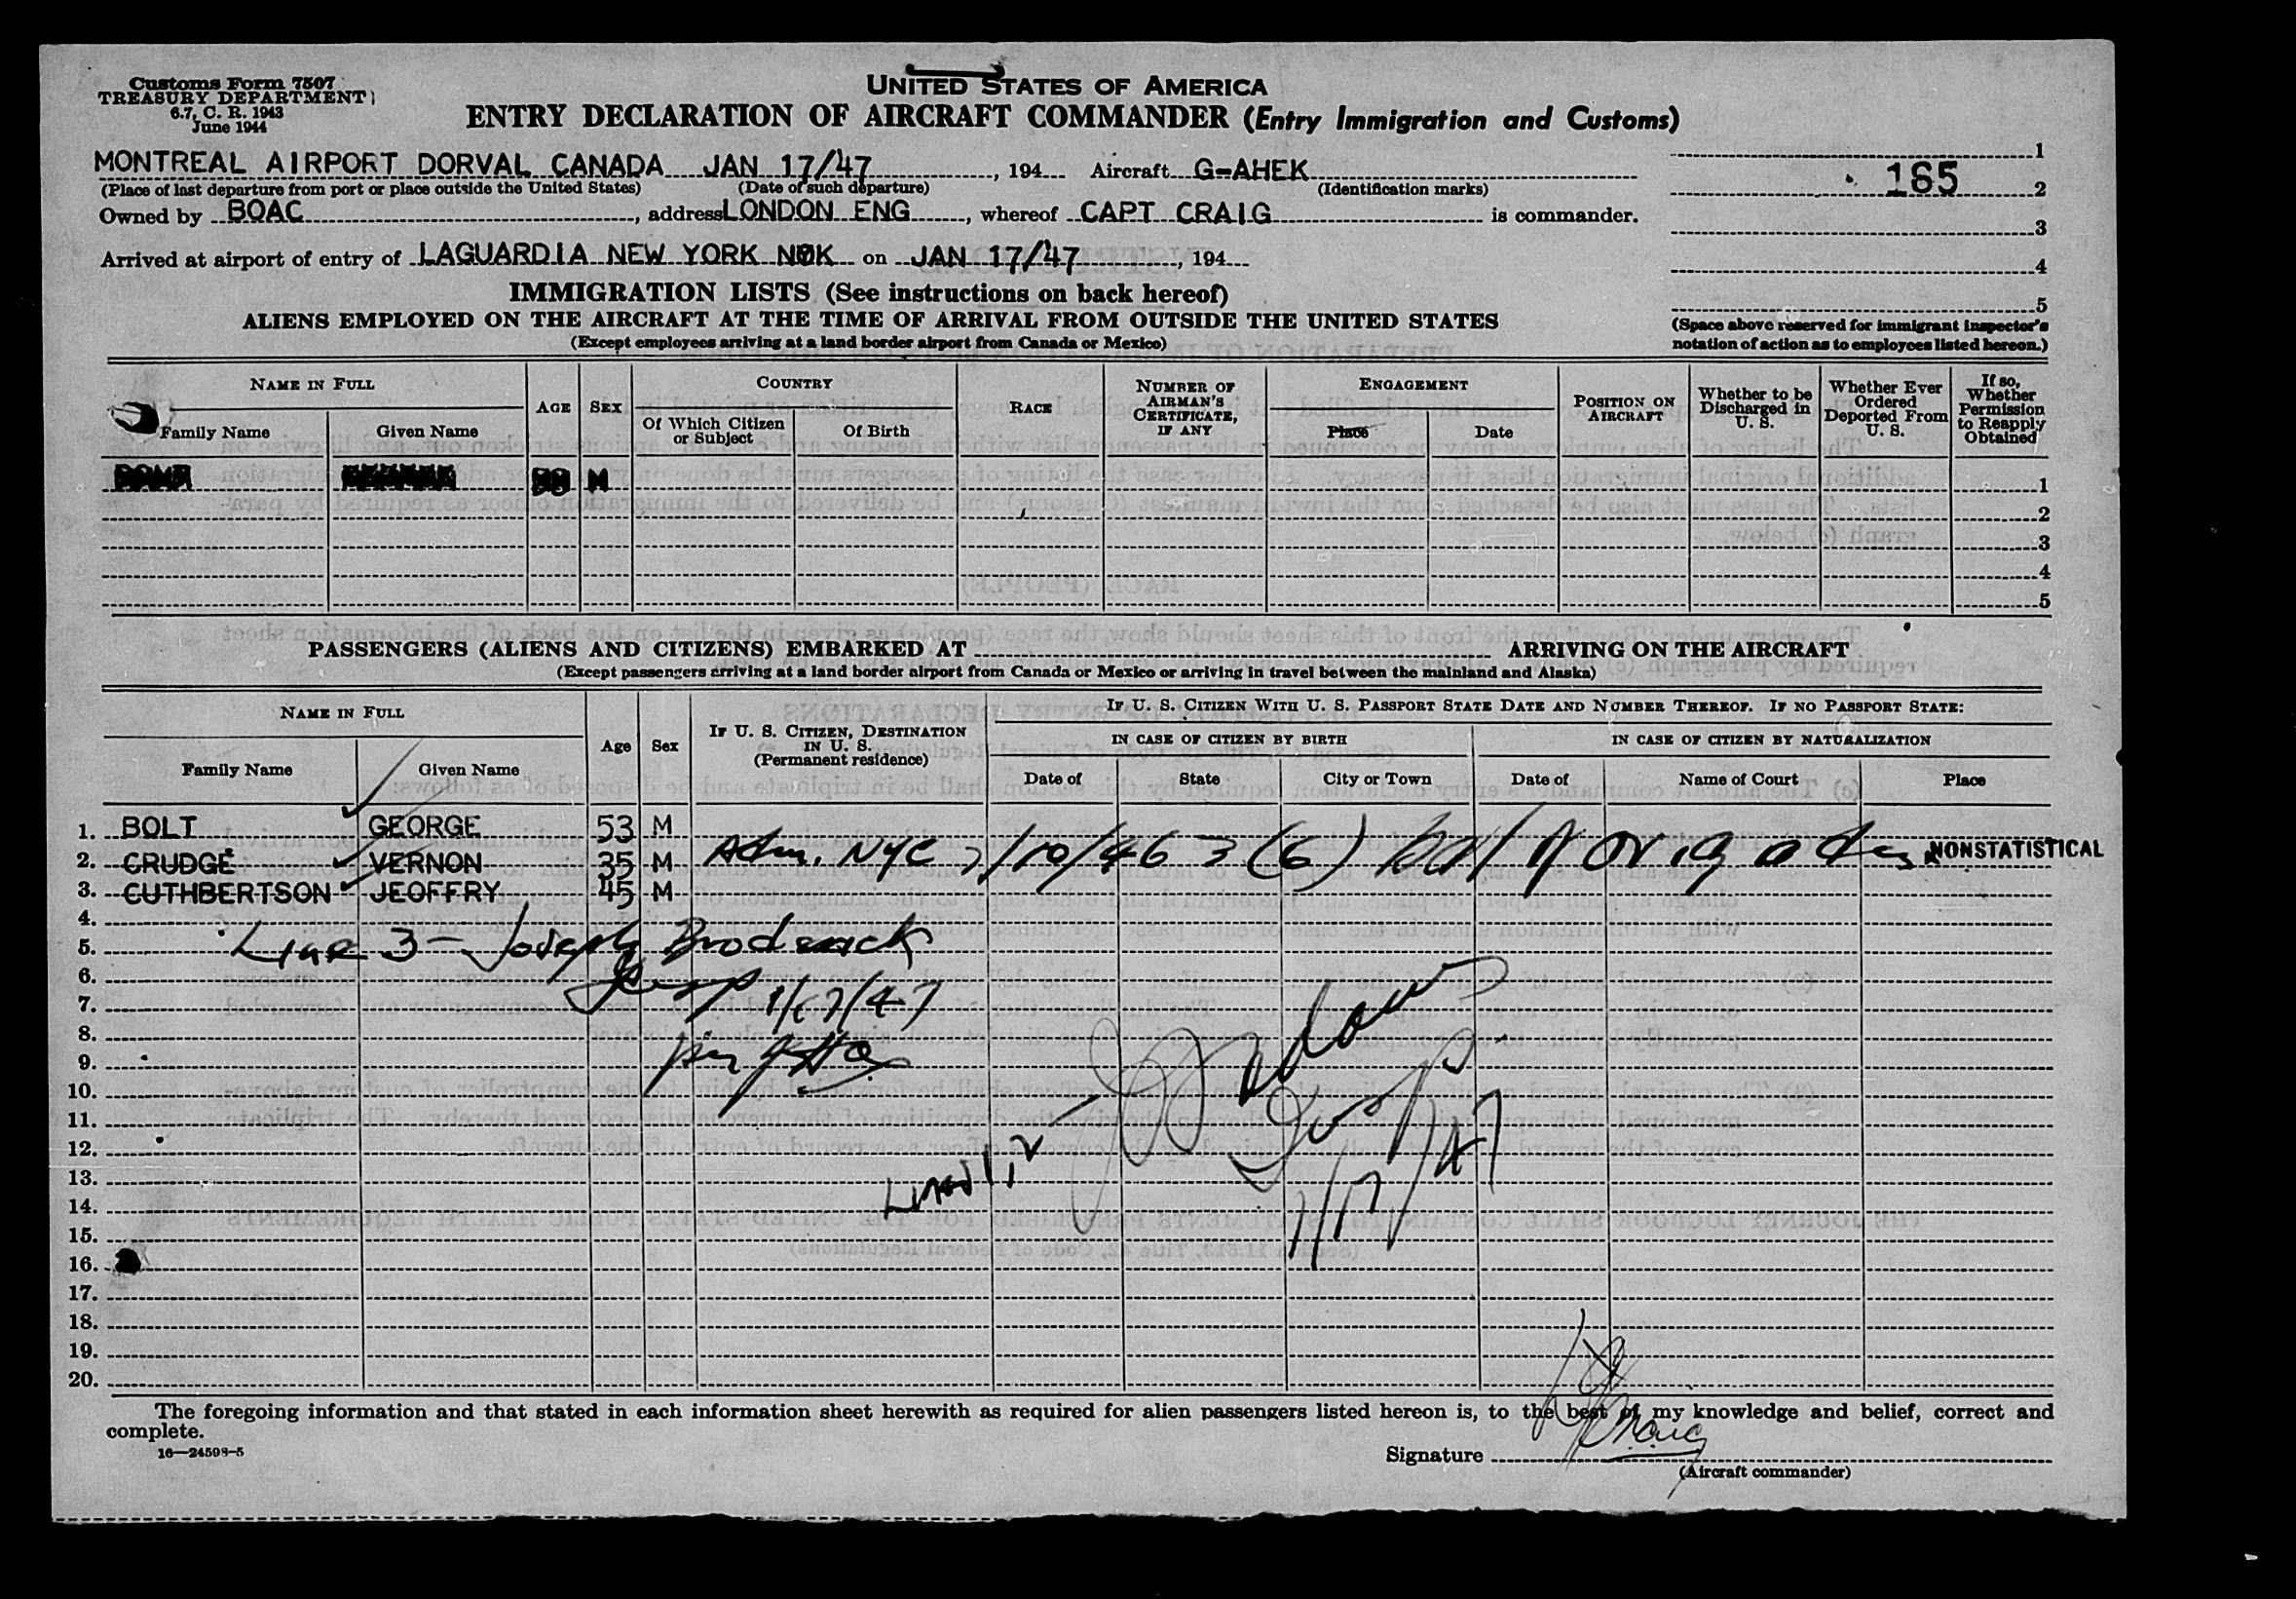 Customs Form 7507
TREASURY DEPARTMENT
6.7, C. R. 1943
June 1944
UNITED STATES OF AMERICA
ENTRY DECLARATION OF AIRCRAFT COMMANDER (Entry Immigration and Customs)
MONTREAL AIRPORT DORVAL CANADA JAN 17/47, 194 Aircraft G-AHEK
(Place of last departure from port or place outside the United States) (Date of such departure) (Identification marks)
Owned by BOAC, address LONDON ENG, whereof CAPT CRAIG is commander.
Arrived at airport of entry of LAGUARDIA NEW YORK on JAN 17/47, 194
1
165 2
3
4
5
(Space above reserved for immigrant inspector's
notation of action as to employees listed hereon.)
IMMIGRATION LISTS (See instructions on back hereof)
ALIENS EMPLOYED ON THE AIRCRAFT AT THE TIME OF ARRIVAL FROM OUTSIDE THE UNITED STATES
(Except employees arriving at a land border airport from Canada or Mexico)
NAME IN FULL
Family Name Given Name
AGE SEX
COUNTRY
Of Which Citizen or Subject Of Birth
RACE
NUMBER OF AIRMAN'S CERTIFICATE, IF ANY
ENGAGEMENT
Place Date
POSITION ON AIRCRAFT
Whether to be Discharged in U. S.
Whether Ever Ordered Deported From U. S.
If so, Whether Permission to Reapply Obtained
M 1
2
3
4
5
PASSENGERS (ALIENS AND CITIZENS) EMBARKED AT ARRIVING ON THE AIRCRAFT
(Except passengers arriving at a land border airport from Canada or Mexico or arriving in travel between the mainland and Alaska)
NAME IN FULL
Family Name Given Name
Age Sex
IF U. S. CITIZEN, DESTINATION IN U. S.
(Permanent residence)
IF U. S. CITIZEN WITH U. S. PASSPORT STATE DATE AND NUMBER THEREOF. IF NO PASSPORT STATE:
IN CASE OF CITIZEN BY BIRTH IN CASE OF CITIZEN BY NATURALIZATION
Date of State City or Town Date of Name of Court Place
1. BOLT GEORGE 53 M
2. CRUDGE VERNON 35 M Adm. NYC NONSTATISTICAL
3. CUTHBERTSON JEOFFRY 45 M
4.
5. Line 3 - Joseph Broderick
6.
7. 1/17/47
8.
9.
10.
11.
12.
13. Lines 1, 2
14. 1/17/47
15.
16.
17.
18.
19.
20.
The foregoing information and that stated in each information sheet herewith as required for alien passengers listed hereon is, to the best of my knowledge and belief, correct and
complete.
16—24598-5
Signature
(Aircraft commander)